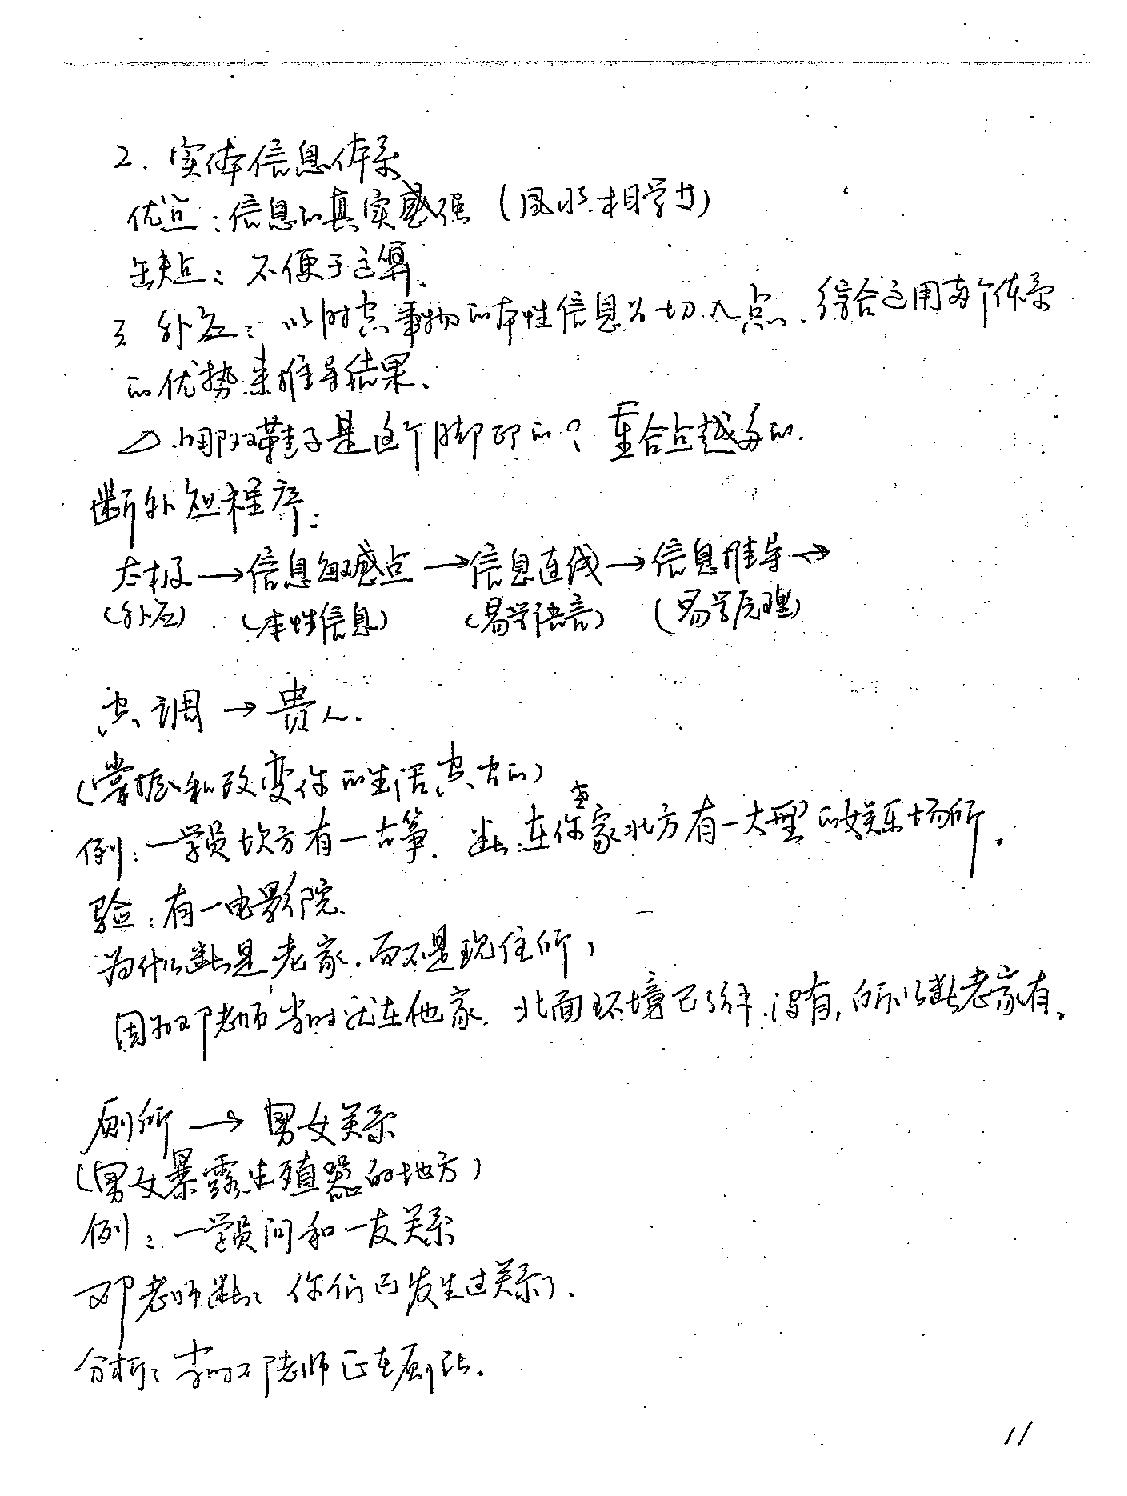 2. 实体信息体系
优点：信息的真实感强（风水.相学力）
缺点：不便于运算.
3 外应：以时空事物的本性信息为切入点.综合运用两个体系
的优势来推导结果.
△ 哪双鞋子是这个脚印的？重合点越多的.
断外应程序：
太极→信息敏感点→信息连线→信息推导→
（外应）（本性信息）（易学语言）（易学原理）
空调→贵人.
（掌握和改变你的生活空间的）
例：一学员坎方有一古筝. 断:在你老家北方有一大型的娱乐场所.
验：有一电影院.
为什么断是老家.而不是现住所，
因为邓老师当时就在他家.北面环境已了解.没有，所以断老家有.
厕所→男女关系
（男女暴露生殖器的地方）
例：一学员问和一友关系
邓老师断：你们已发生过关系了.
分析：当时邓老师正在厕所.
11